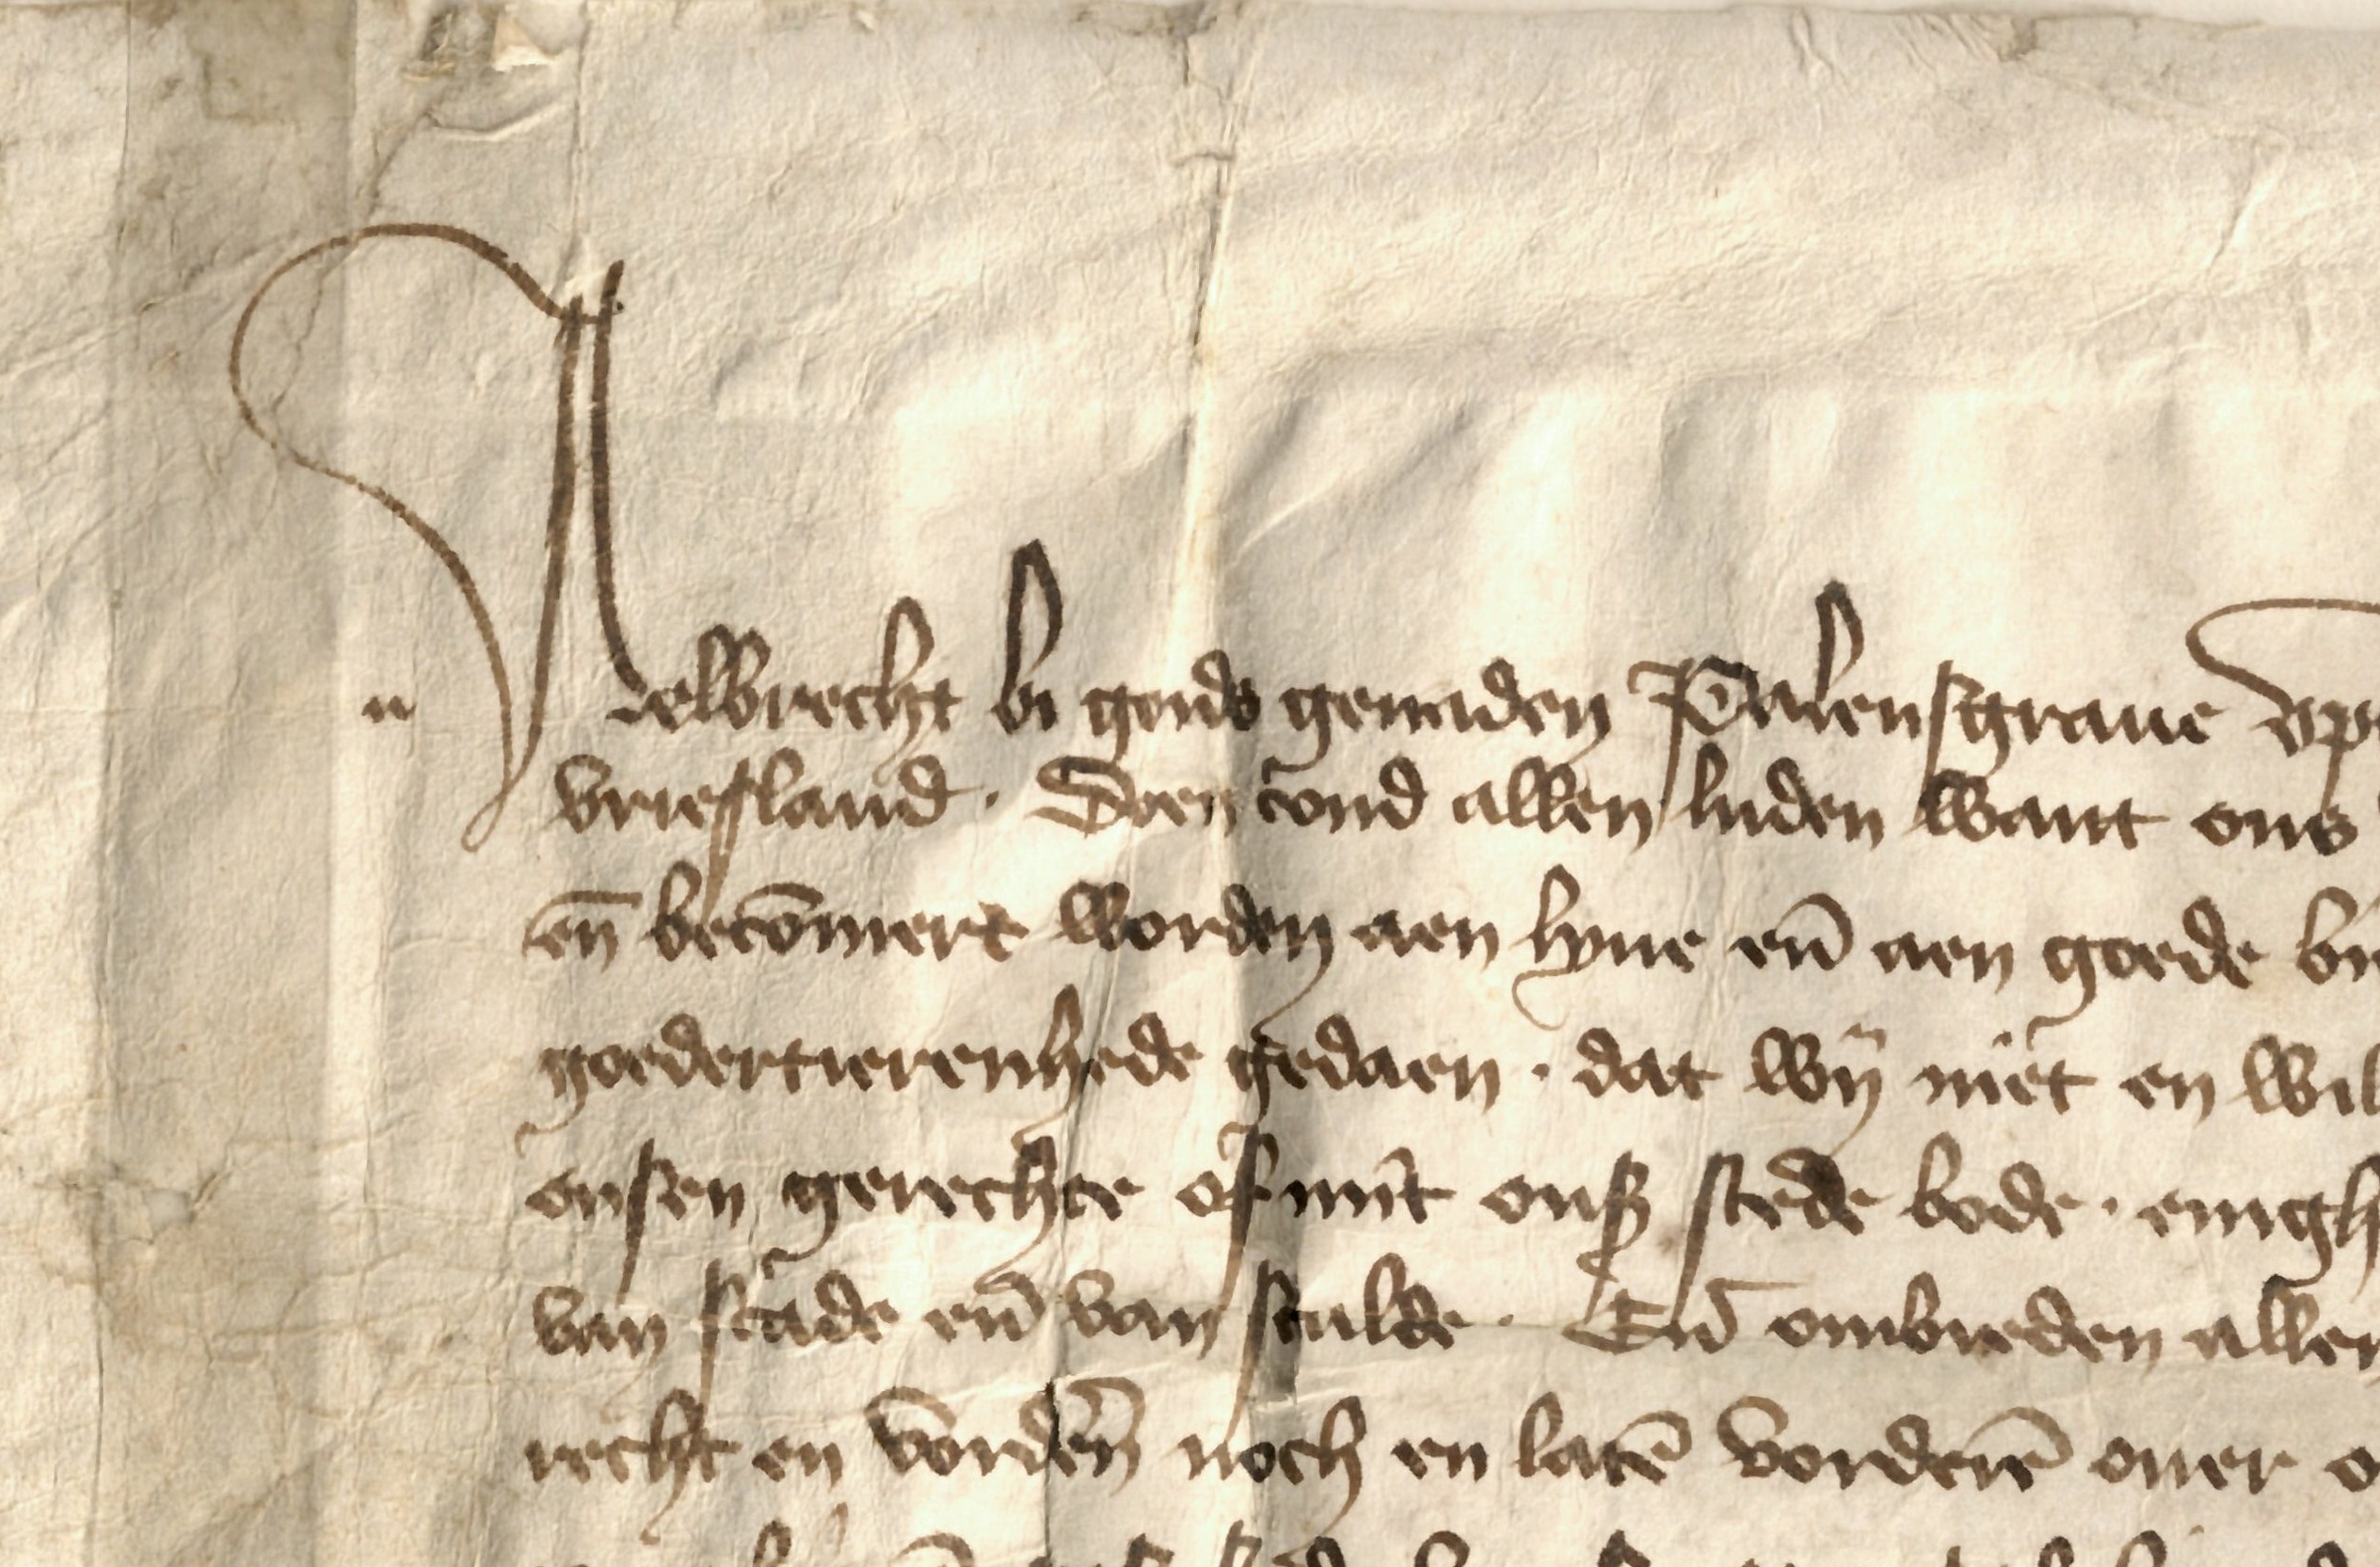 Aelbrecht bi gods genaden Palensgraue vp
vriesland · Doen cond allen luden want ons
en̄ becōmert worden aen lyue en̄ aen goede bi
goedertierenhede gedaen · dat wij niet en wil
onsen gerechte of mit onss stede bode · enigh
van scade en̄ van sculde · En̄ ombieden allen
recht en vorderñ noch en latē vorderē ouer o